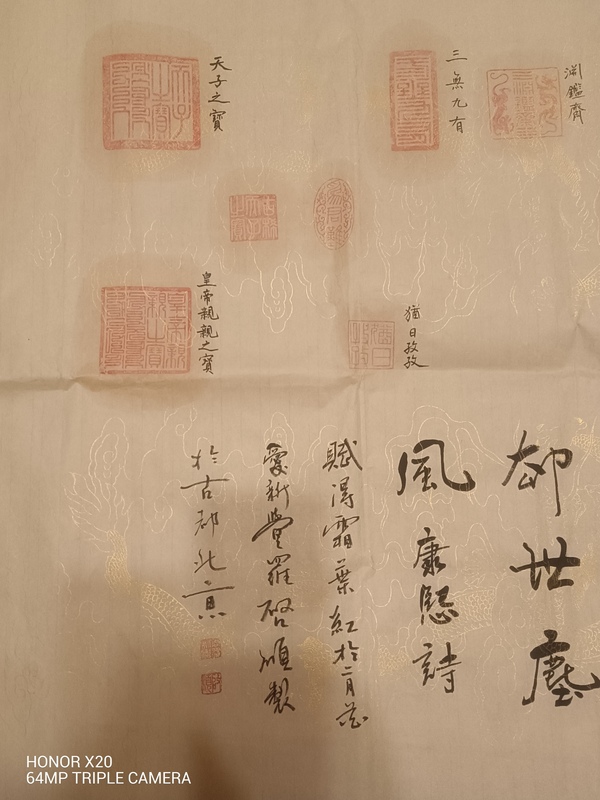 渊鑑齋
三無九有
天子之寶
猶日孜孜
皇帝親親之寶
却世塵
風 康熙詩
賦得霜葉紅於二月花
愛新覺羅啓順製
於古都北京
HONOR X20
64MP TRIPLE CAMERA